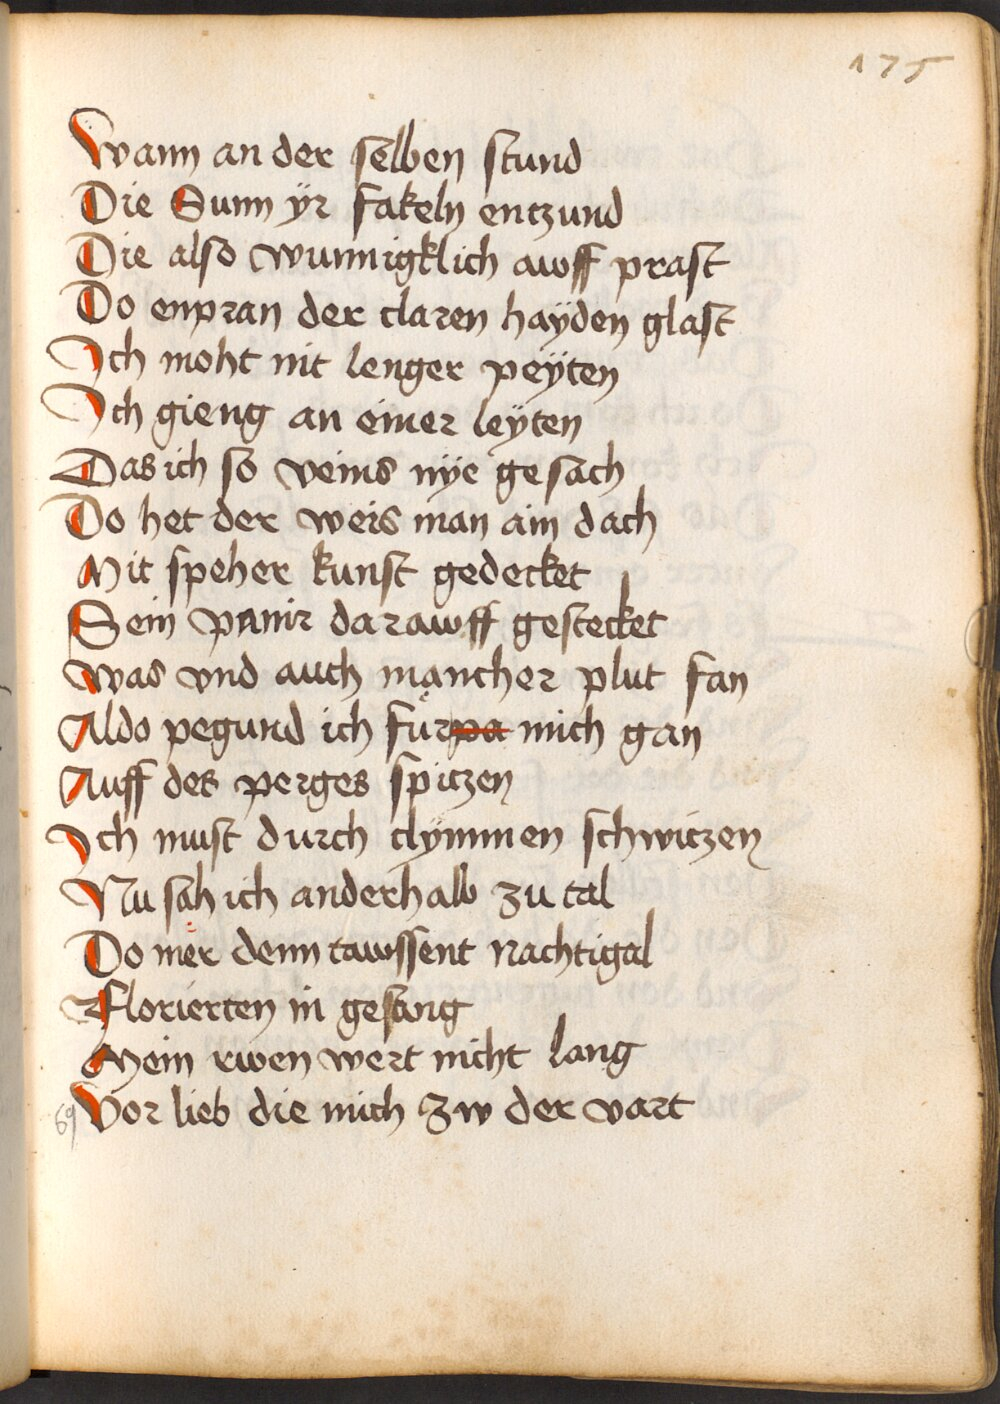 175
Wann an der selben stund
Die Sunn ÿr fakeln entzund
Die also wunnigklich awff prast
Do enpran der claren haÿden glast
Ich moht nit lenger peÿten
Ich gieng an einer leÿten
Das ich so veins nÿe gesach
Do het der weis man ain dach
Mit speher kunst gedecket
Sein panir darawff gestecket
was vnd auch mancher plut fan
Aldo pegund ich fürpa mich gan
Auff des perges spitzen
Ich must durch clÿmmen schwitzen
Nu sah ich anderhalb zu tal
Do mer denn tawssent nachtigal
Florierten in gesang
Mein rwen wert nicht lang
Vor lieb die mich zw der vart
69